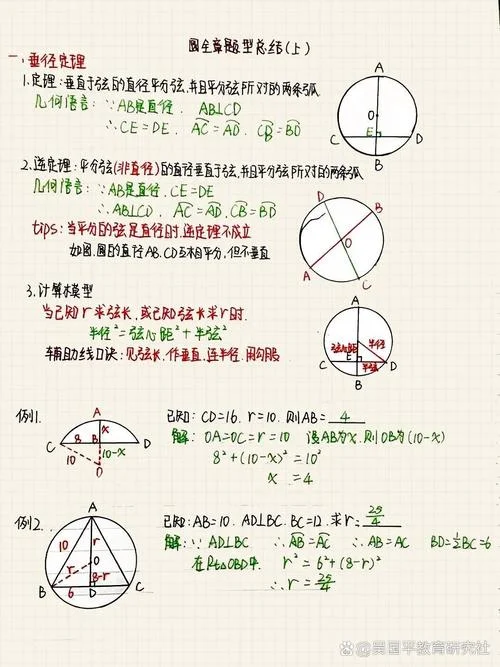 圆全章题型总结(上)
一、垂径定理
1.定理:垂直于弦的直径平分弦,并且平分弦所对的两条弧
几何语言:∵AB是直径.AB⊥CD
∴CE=DE. AC=AD. CB=BD
A
O
C E D
B
2.逆定理:平分弦(非直径)的直径垂直于弦,并且平分弦所对的两条弧
几何语言:∵AB是直径.CE=DE
∴AB⊥CD. AC=AD.CB=BD
tips:当平分的弦是直径时,逆定理不成立
如图,圆的直径AB.CD互相平分,但不垂直
D
B
O
A
C
3.计算模型
当已知r求弦长,或已知弦长求r时.
半径²=弦心距²+半弦²
辅助线口诀:见弦长,作垂直,连半径,用勾股
A
弦心距 半径
C E D
半弦
B
例1.
A
x
8 B
C D
10 10-x
O
已知:CD=16.r=10.则AB=4
解:OA=OC=r=10 设AB为x.则OB为(10-x)
8²+(10-x)²=10²
x=4
例2.
A
10 r
O
r 8-r
B 6 D C
已知:AB=10.AD⊥BC.BC=12.求r=25/4
解:∵AD⊥BC ∴AB=AC ∴AB=AC BD=½BC=6
在Rt△OBD中. r²=6²+(8-r)²
∴r=25/4
@昊国平教育研究社